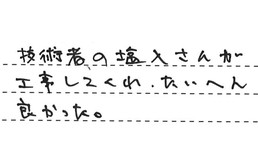 技術者の塩入さんが
工事してくれ、たいへん
良かった。